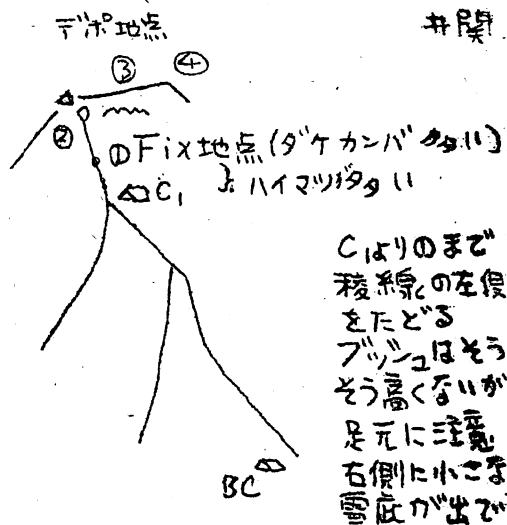 デポ地点
井関
③ ④
②
① Fix地点 (ダケカンバ多い)
C₁
ハイマツが多い
C₁より①まで
稜線の左側
をたどる
ブッシュはそう
そう高くないが
足元に注意
右側に小さな
雪庇が出て
BC